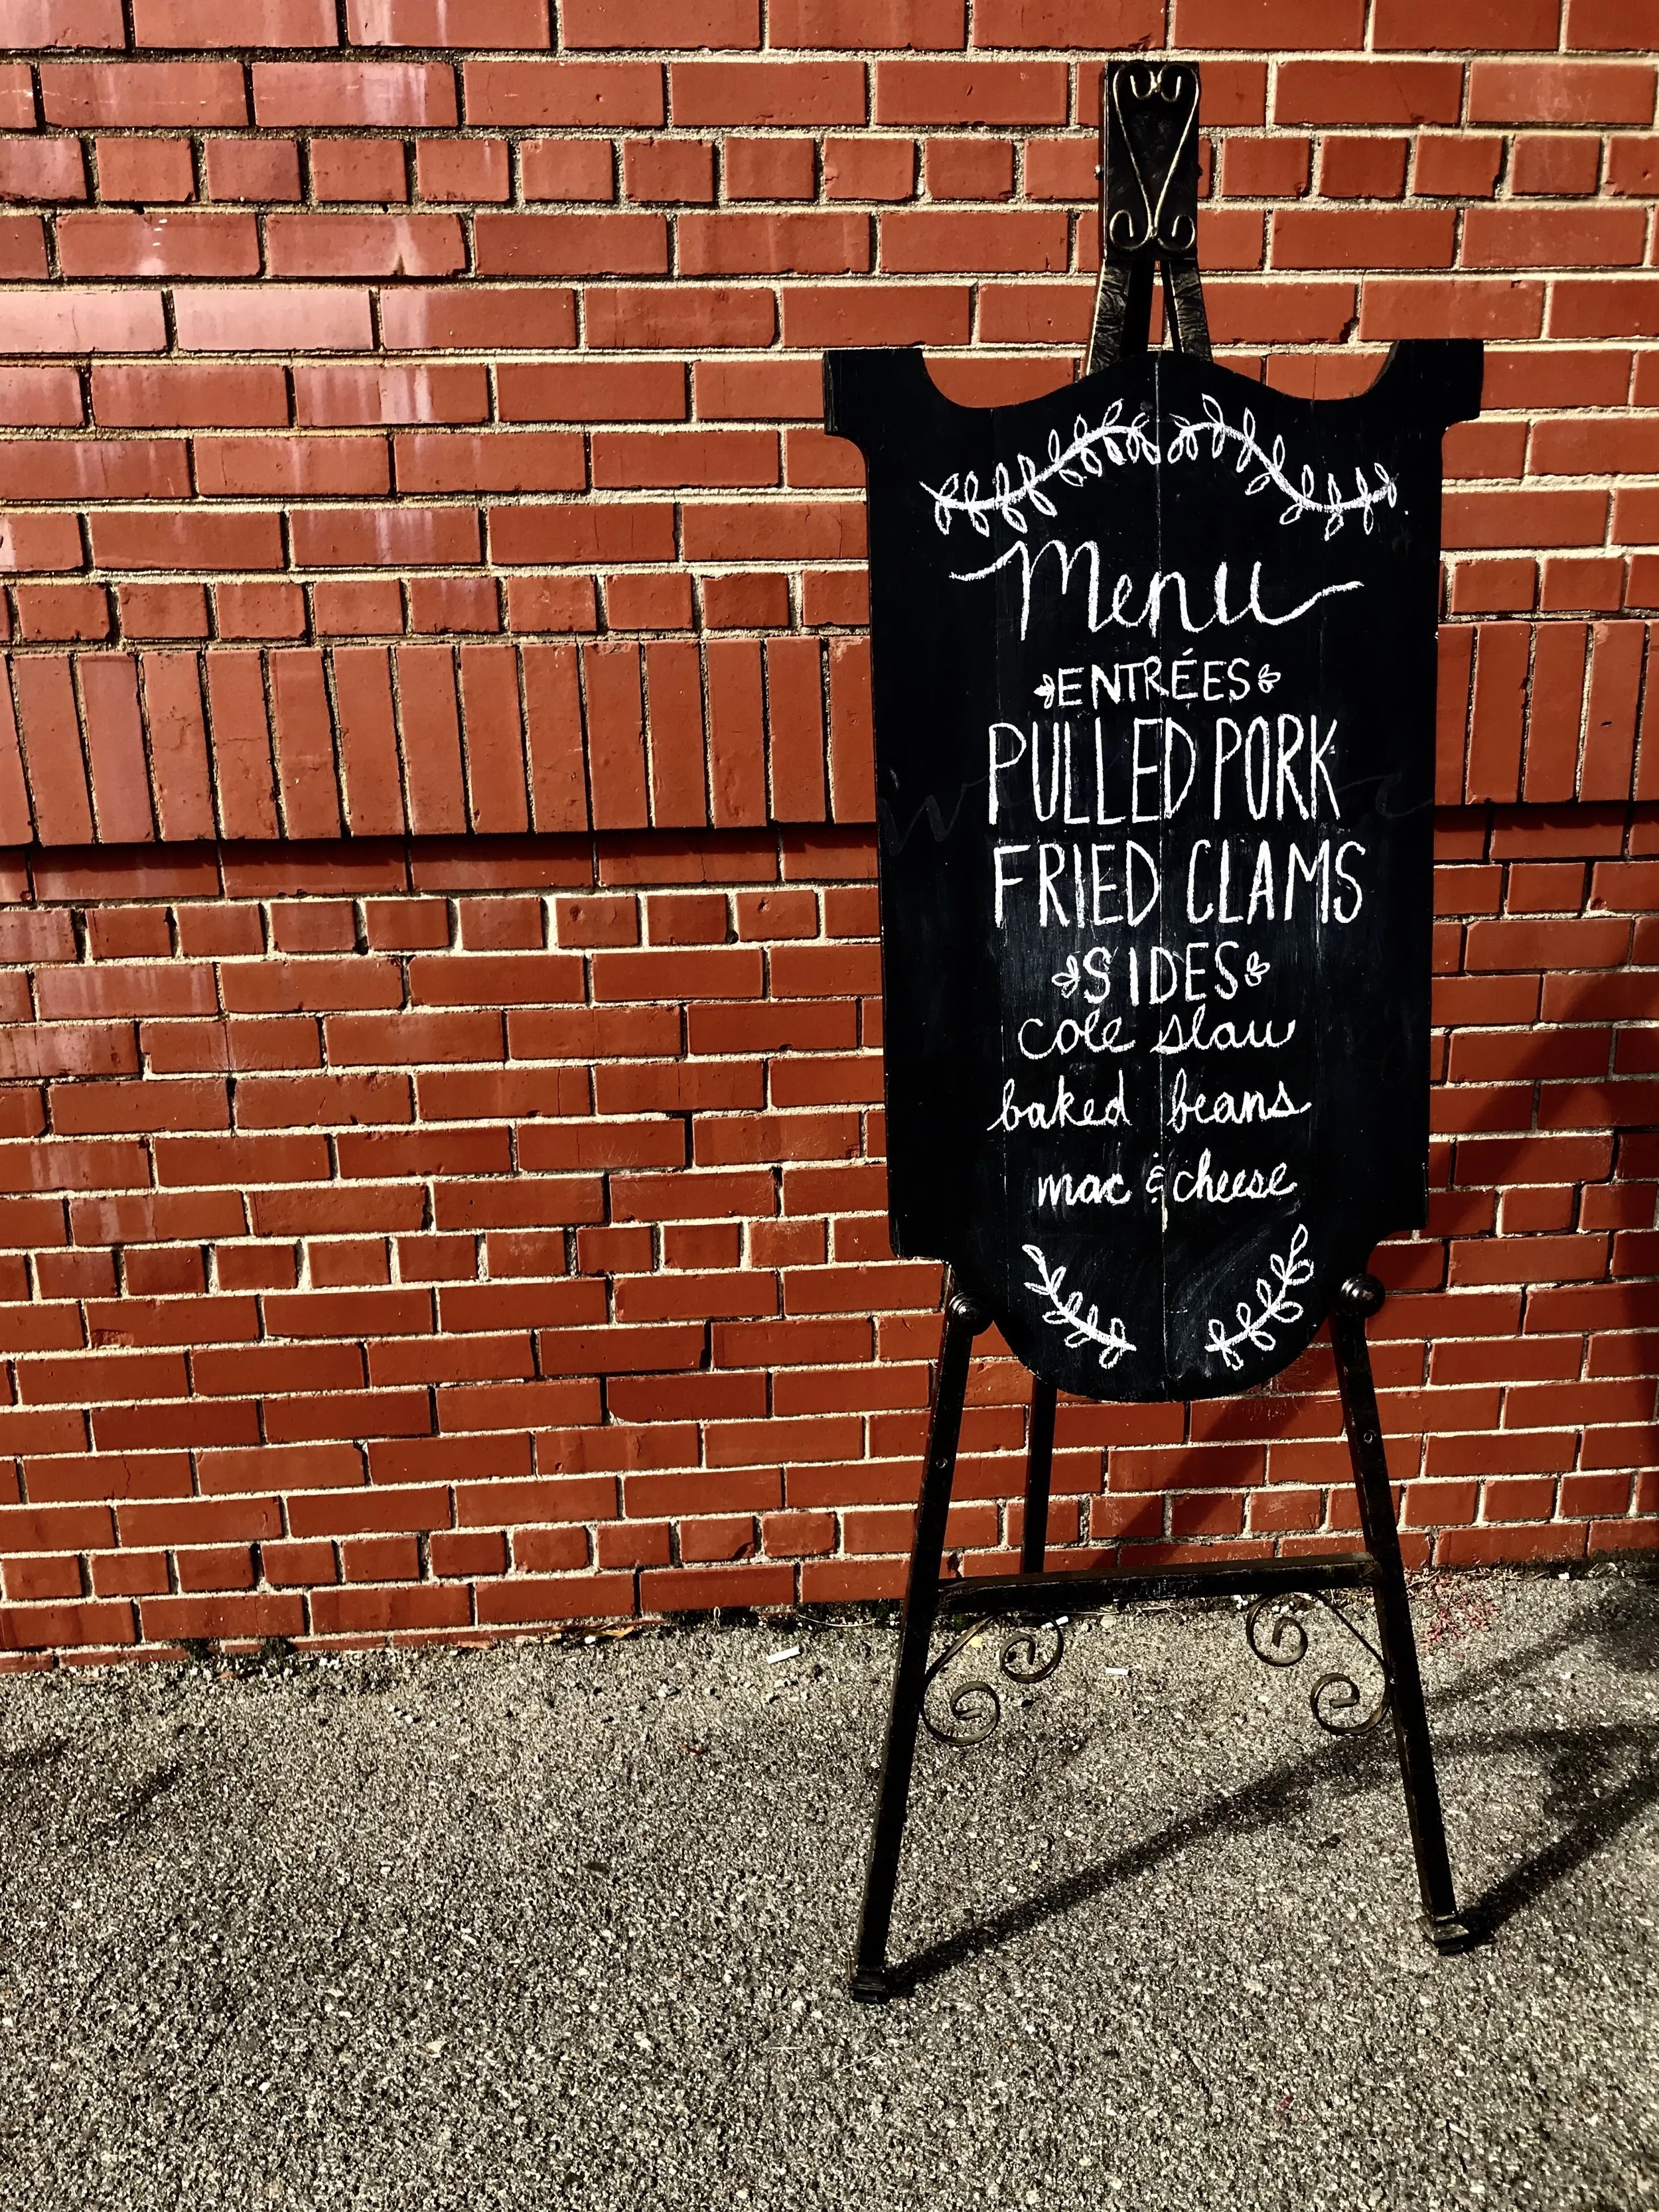 Menu
ENTRÉES
PULLED PORK
FRIED CLAMS
SIDES
cole slaw
baked beans
mac & cheese